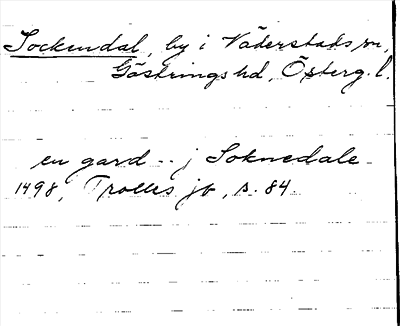 Sockendal, by i Väderstads sn,
Göstrings hd, Österg. l.
en gard -- j Soknedale
1498, Trolles jb, s. 84.